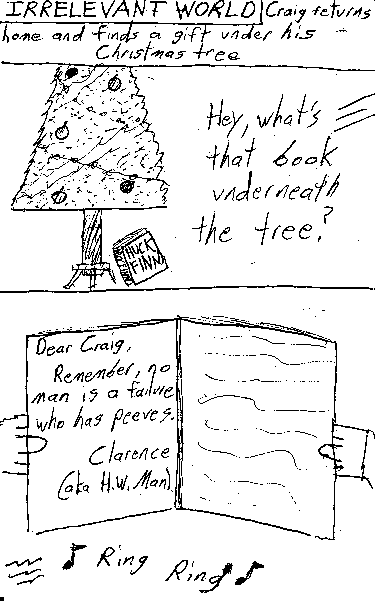 IRRELEVANT WORLD Craig returns
home and finds a gift under his
Christmas tree
Hey, what's
that book
underneath
the tree?
HUCK
FINN
Dear Craig,
Remember, no
man is a failure
who has peeves.
Clarence
(aka H.W. Man)
Ring
Ring